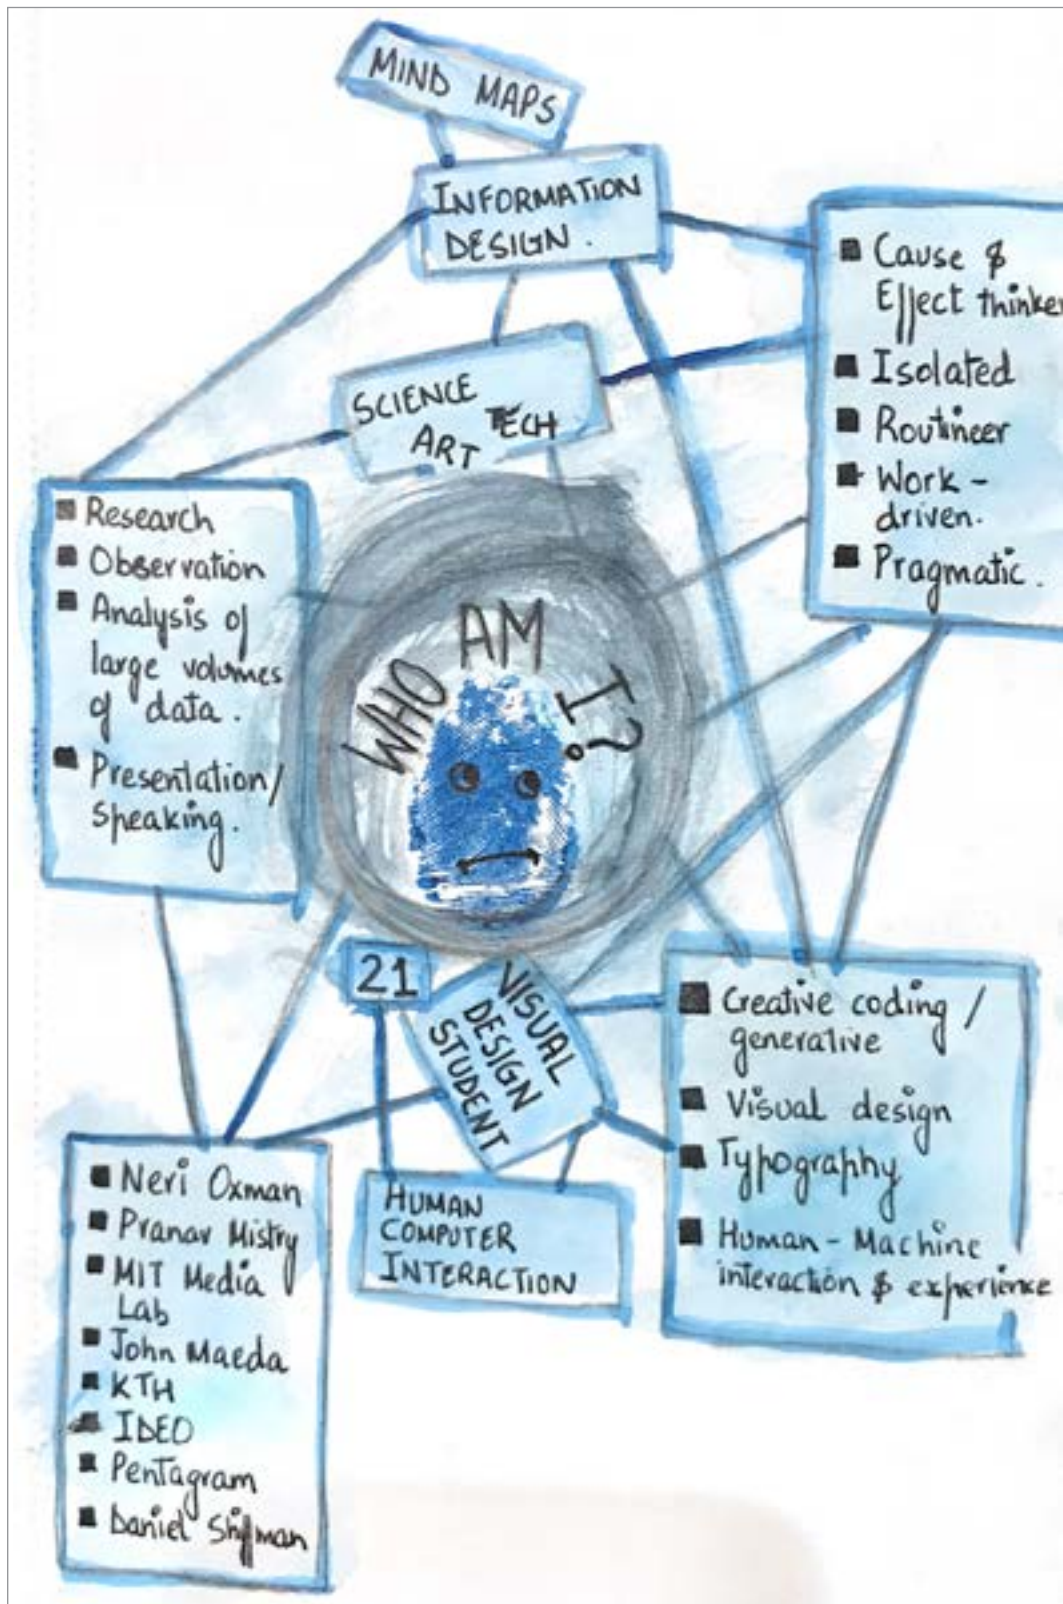 MIND MAPS
INFORMATION
DESIGN.
SCIENCE
ART TECH
Cause &
Effect thinker
Isolated
Routineer
Work-
driven.
Pragmatic.
Research
Observation
Analysis of
large volumes
of data.
Presentation/
speaking.
WHO AM I?
21
VISUAL
DESIGN
STUDENT
HUMAN
COMPUTER
INTERACTION
Creative coding /
generative
Visual design
Typography
Human-Machine
interaction & experience
Neri Oxman
Pranav Mistry
MIT Media
Lab
John Maeda
KTH
IDEO
Pentagram
Daniel Shiffman